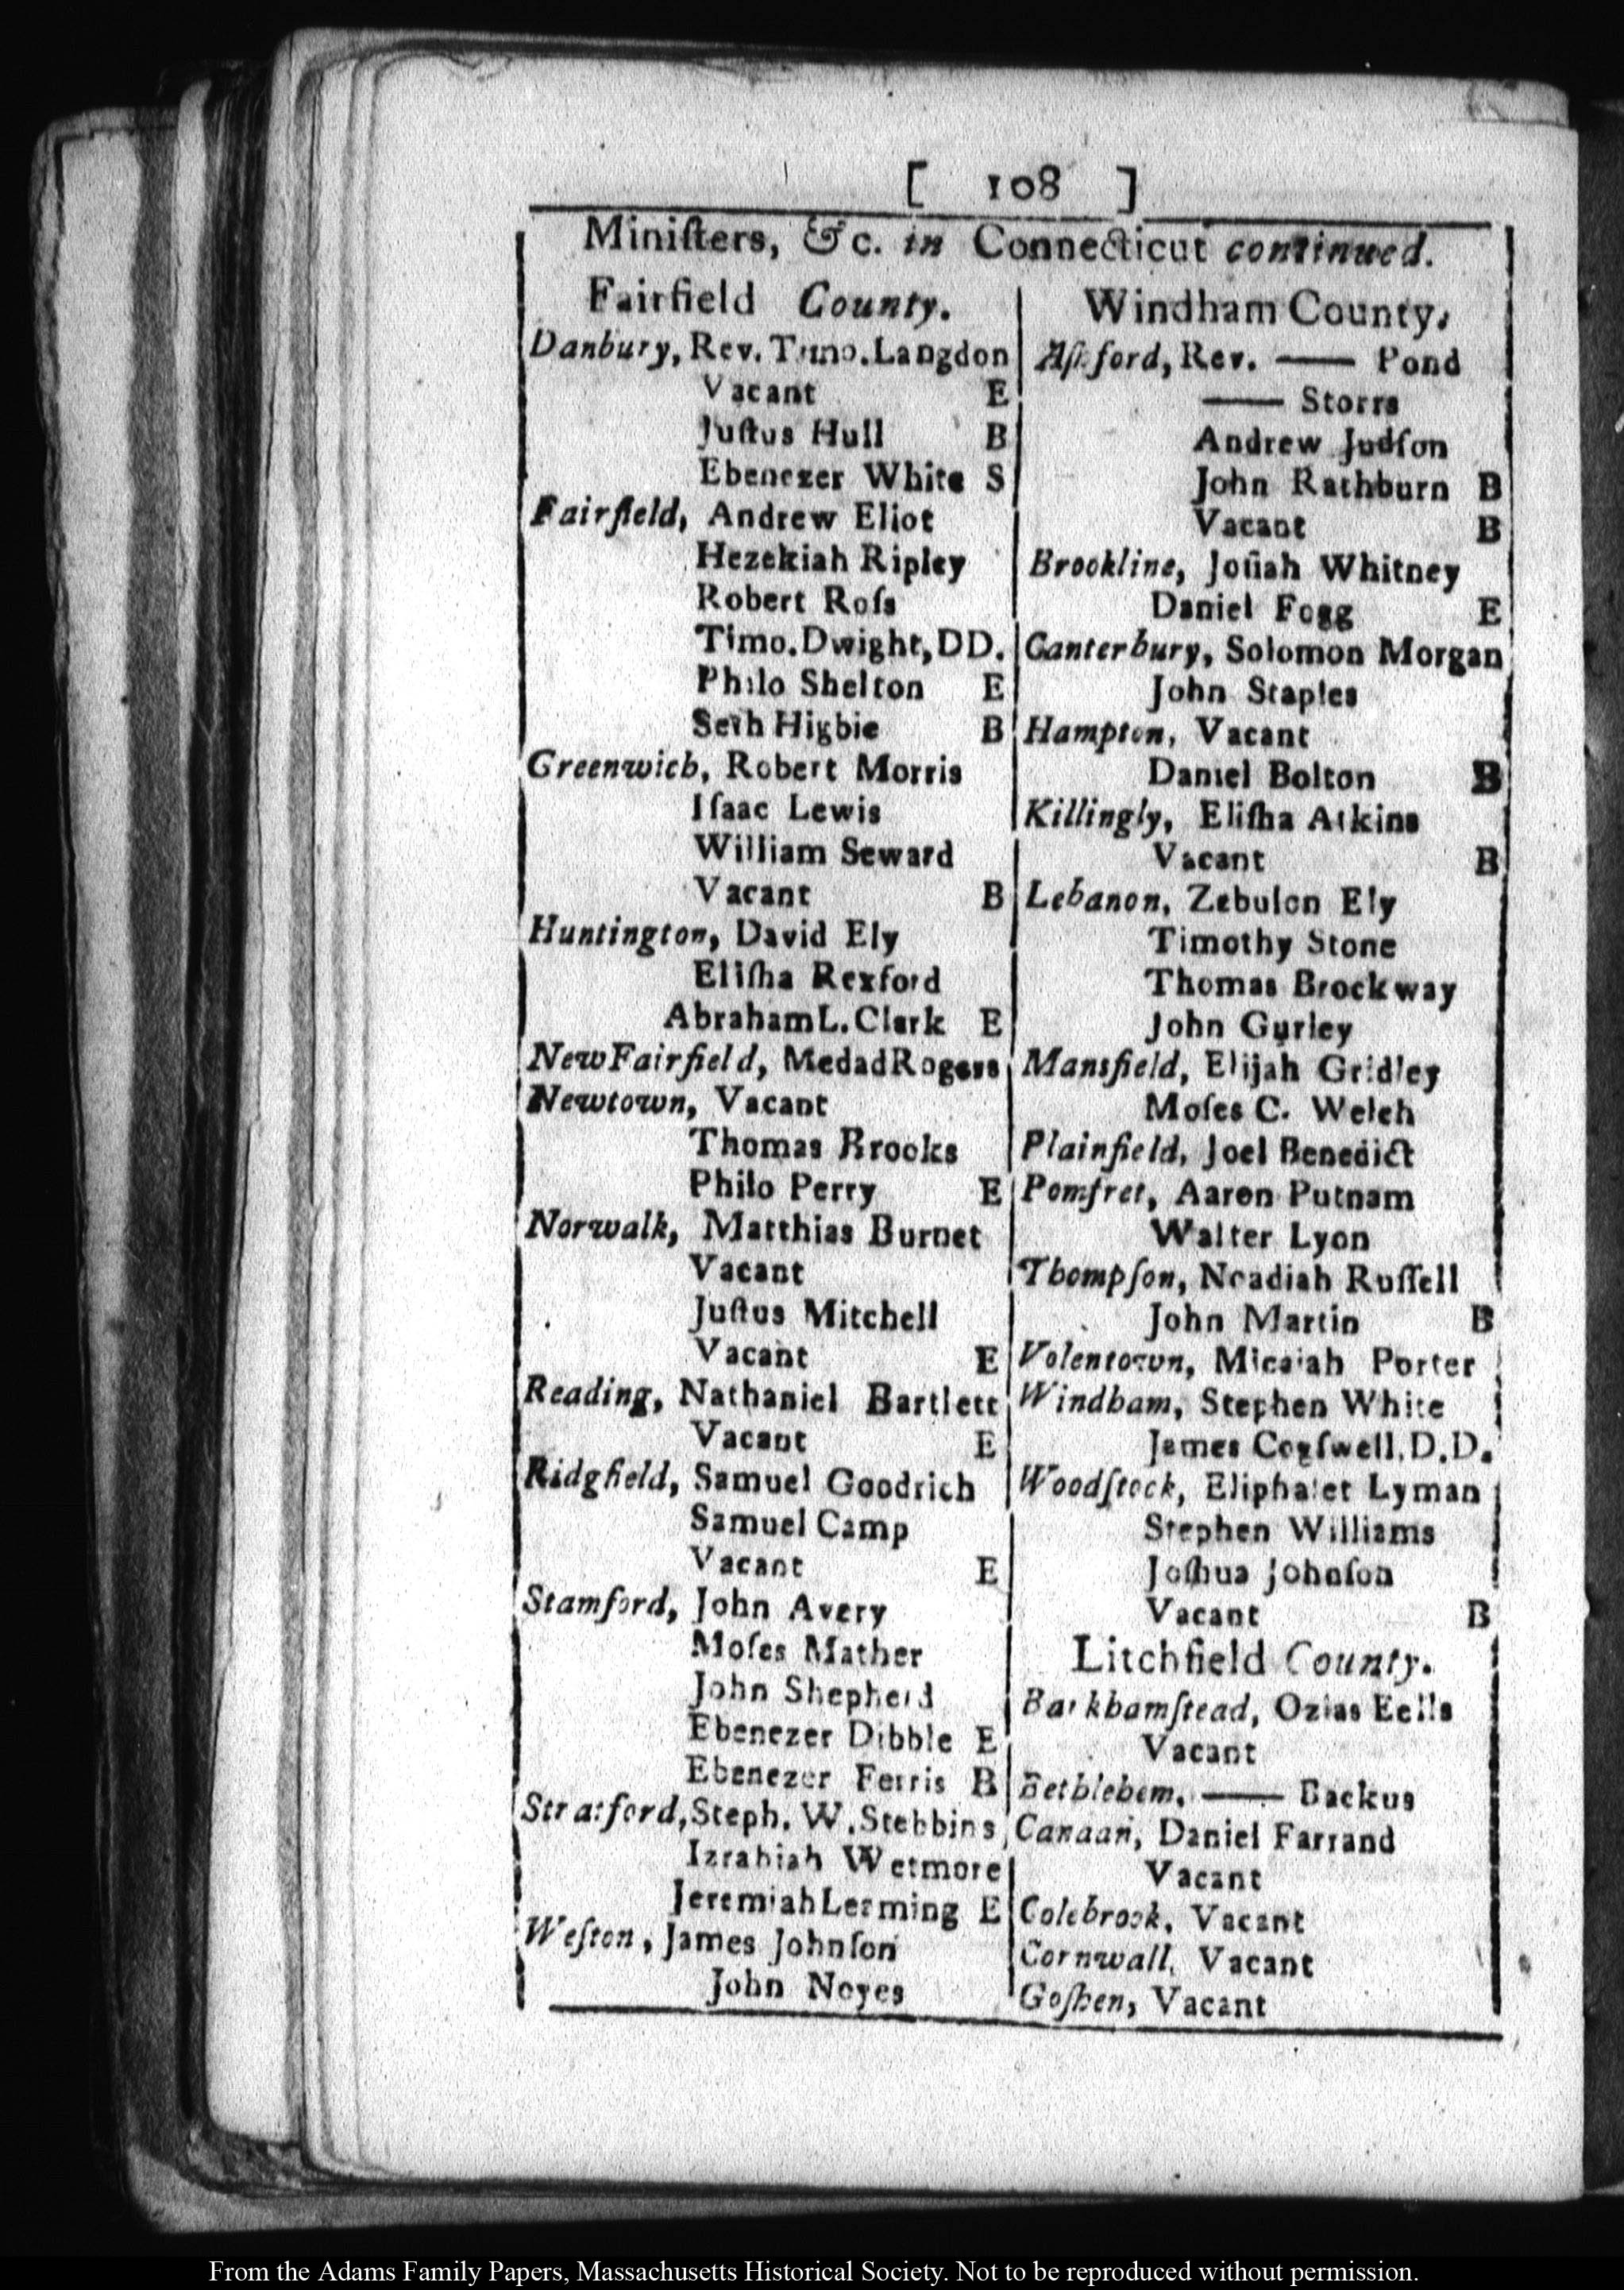 [ 108 ]
Miniſters, &c. in Connecticut continued.
Fairfield County.
Danbury, Rev. Timo. Langdon
Vacant E
Juſtus Hull B
Ebenezer White S
Fairfield, Andrew Eliot
Hezekiah Ripley
Robert Roſs
Timo. Dwight, DD.
Philo Shelton E
Seth Higbie B
Greenwich, Robert Morris
Iſaac Lewis
William Seward
Vacant B
Huntington, David Ely
Eliſha Rexford
Abraham L. Clark E
New Fairfield, Medad Rogers
Newtown, Vacant
Thomas Brooks
Philo Perry E
Norwalk, Matthias Burnet
Vacant
Juſtus Mitchell
Vacant E
Reading, Nathaniel Bartlett
Vacant E
Ridgfield, Samuel Goodrich
Samuel Camp
Vacant E
Stamford, John Avery
Moſes Mather
John Shepherd
Ebenezer Dibble E
Ebenezer Ferris B
Stratford, Steph. W. Stebbins
Izrahiah Wetmore
Jeremiah Learming E
Weſton, James Johnſon
John Noyes
Windham County.
Aſhford, Rev. —— Pond
—— Storrs
Andrew Judſon
John Rathburn B
Vacant B
Brookline, Joſiah Whitney
Daniel Fogg E
Canterbury, Solomon Morgan
John Staples
Hampton, Vacant
Daniel Bolton B
Killingly, Eliſha Atkins
Vacant B
Lebanon, Zebulon Ely
Timothy Stone
Thomas Brockway
John Gurley
Mansfield, Elijah Gridley
Moſes C. Welch
Plainfield, Joel Benedict
Pomfret, Aaron Putnam
Walter Lyon
Thompſon, Noadiah Ruſſell
John Martin B
Volentown, Micaiah Porter
Windham, Stephen White
James Cogſwell, D.D.
Woodſtock, Eliphalet Lyman
Stephen Williams
Joſhua Johnſon
Vacant B
Litchfield County.
Barkhamſtead, Ozias Eells
Vacant
Bethlehem, —— Backus
Canaan, Daniel Farrand
Vacant
Colebrook, Vacant
Cornwall, Vacant
Goſhen, Vacant
From the Adams Family Papers, Massachusetts Historical Society. Not to be reproduced without permission.